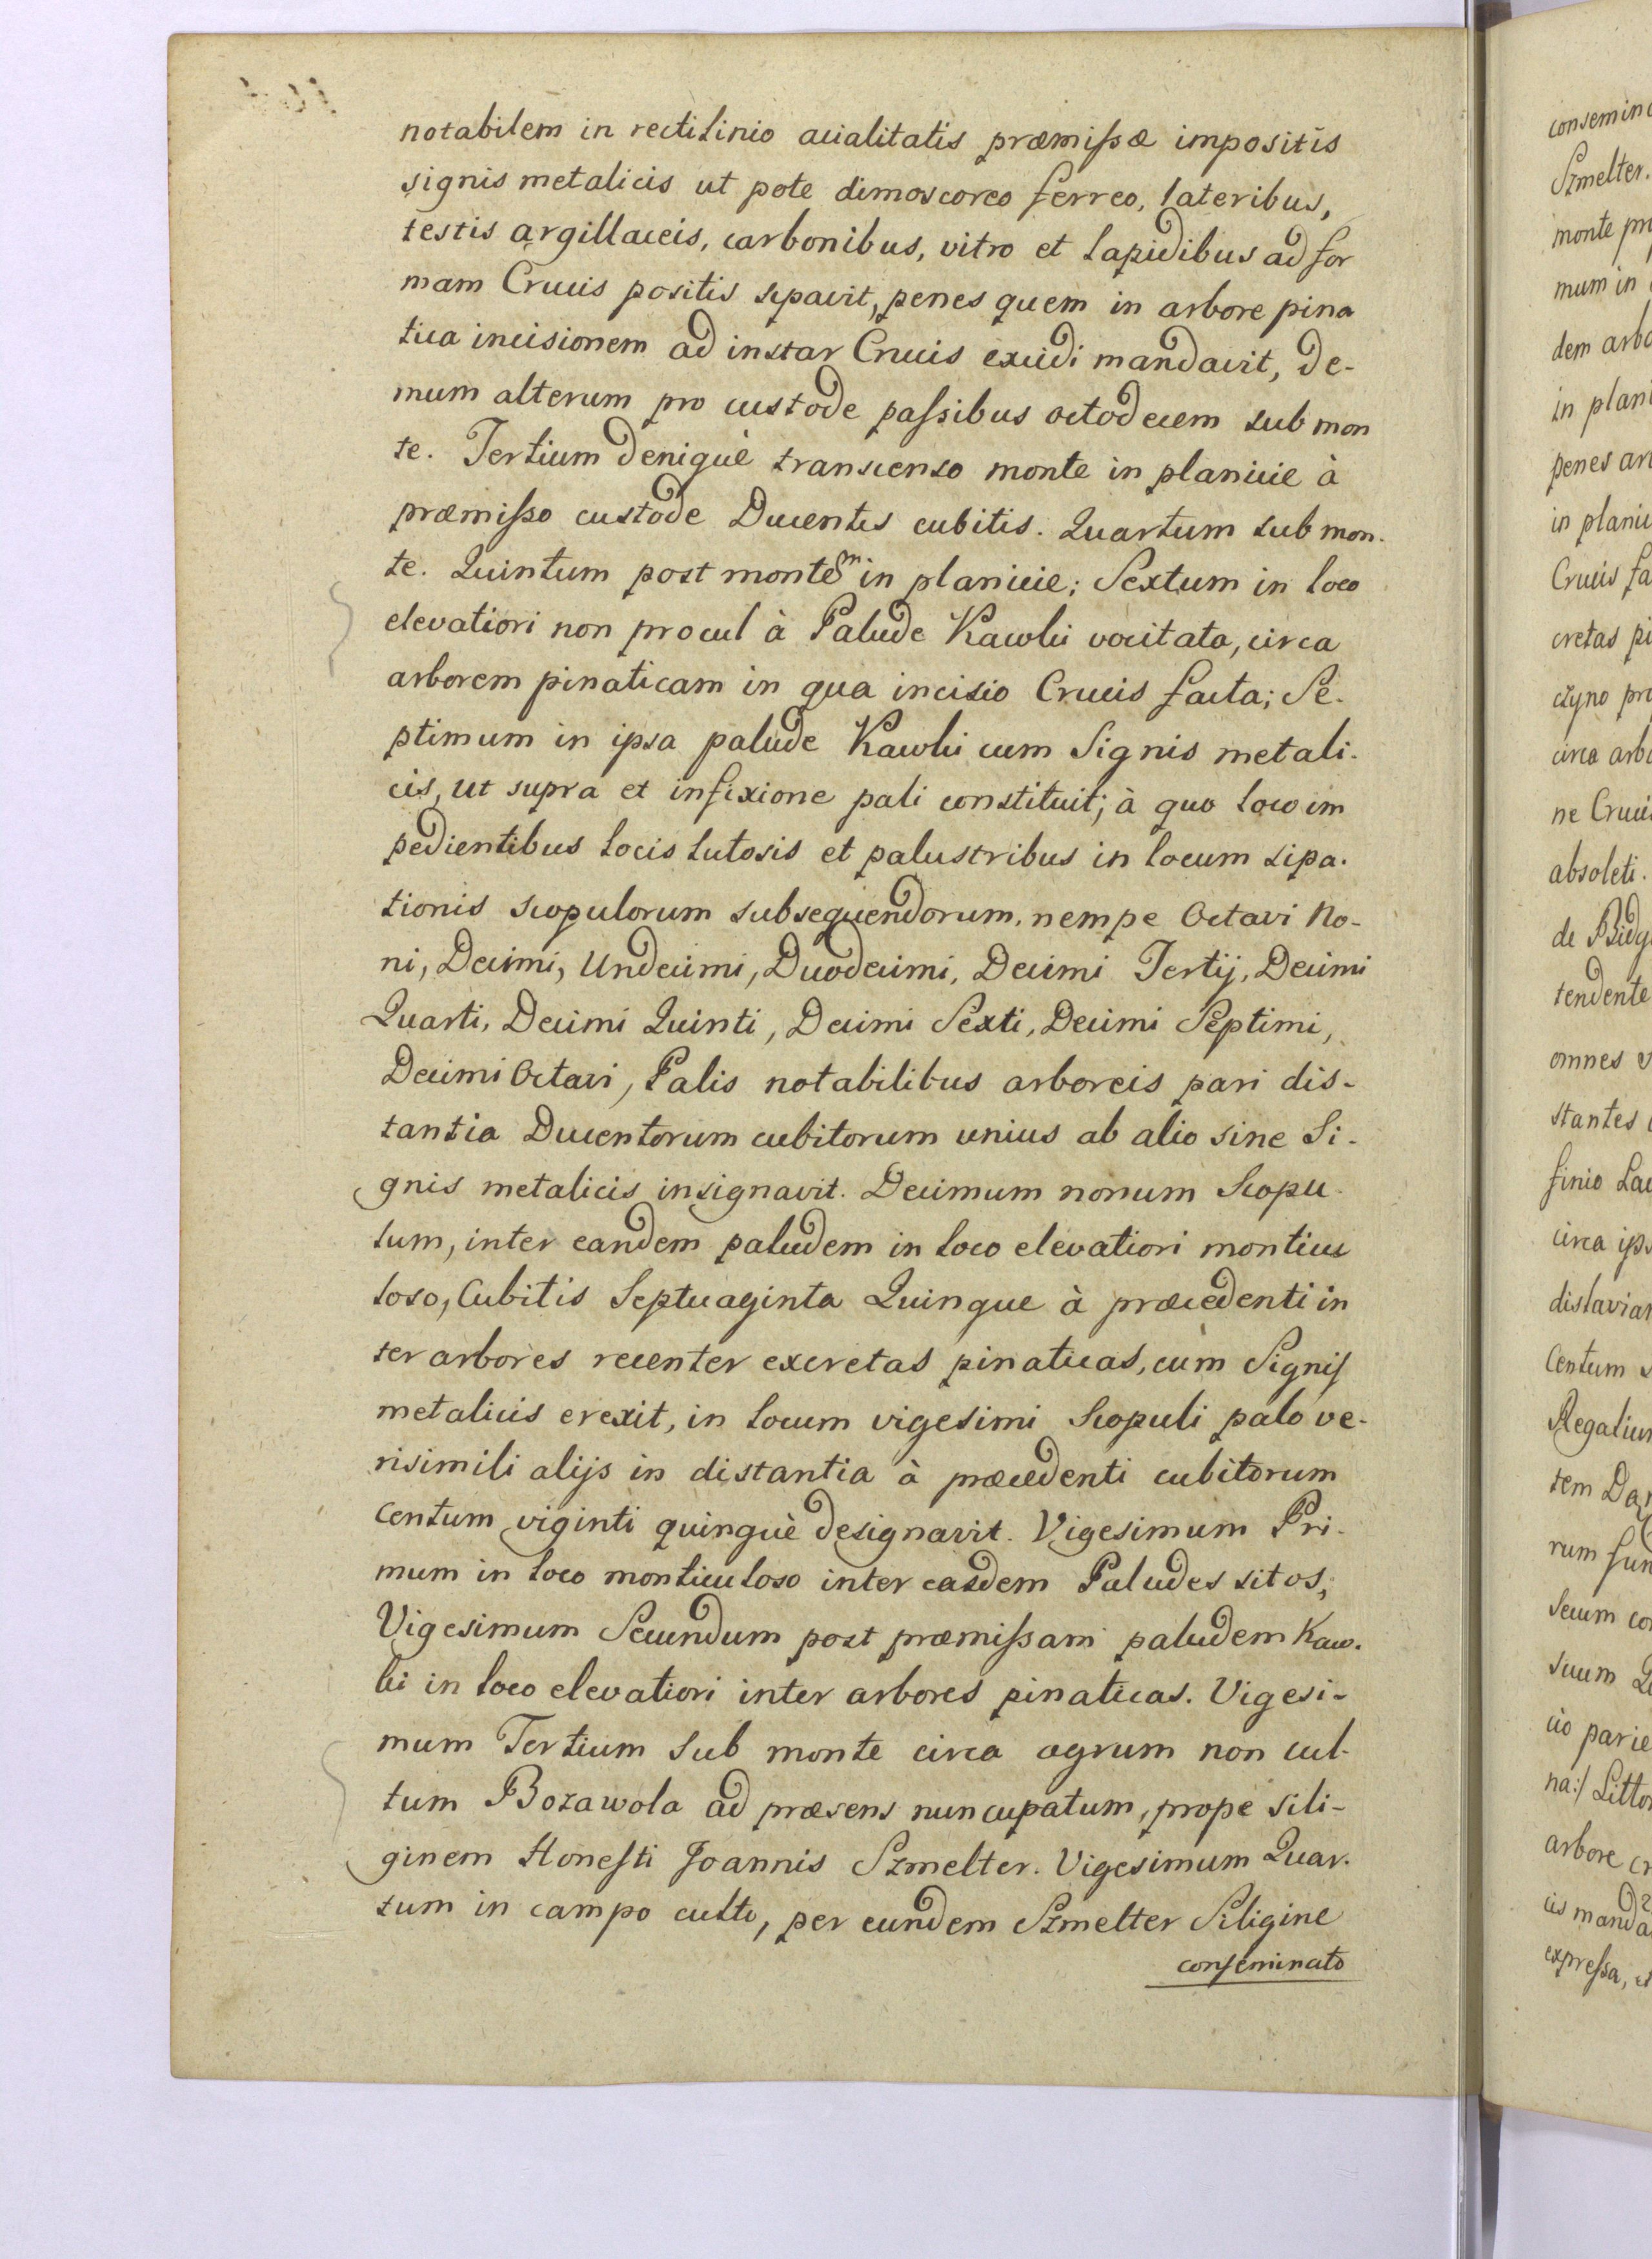 notabilem in rectilinio acialitatis præmissæ impositis
signis metalicis ut pote dimoscoreo ferreo, lateribus,
testis argillaceis, carbonibus, vitro et lapidibus ad for
mam Crucis positis sipavit, penes quem in arbore pina
tica incisionem ad instar Crucis excidi mandavit, De-
mum alterum pro custode passibus octodecem sub mon
te. Tertium deniquè transcenso monte in planicie à
præmisso custode Ducentis cubitis. Quartum sub mon-
te. Quintum post montem in planicie; Sextum in loco
elevatiori non procul à Palude Kawlii vocitata, circa
arborem pinaticam in qua incisio Crucis facta; Se-
ptimum in ipsa palude Kawlii cum Signis metali-
cis, ut supra et infixione pali constituit; à quo loco im
pedientibus locis lutosis et palustribus in locum sipa-
tionis scopulorum subsequendorum, nempe Octavi No-
ni, Decimi, Undecimi, Duodecimi, Decimi Tertij, Decimi
Quarti, Decimi Quinti, Decimi Sexti, Decimi Septimi,
Decimi Octavi, Palis notabilibus arboreis pari dis-
tantia Ducentorum cubitorum unius ab alio sine Si-
gnis metalicis insignavit. Decimum nonum Scopu-
lum, inter eandem paludem in loco elevatiori monticu
loso, Cubitis Septuaginta Quinque à præcedenti in
ter arbores recenter excretas pinaticas, cum Signis
metalicis erexit, in locum vigesimi Scopuli palo ve-
risimili alijs in distantia à præcedenti cubitorum
Centum viginti quinquè designavit. Vigesimum Pri-
mum in loco monticuloso inter easdem Paludes sitos;
Vigesimum Secundum post præmissam paludem Kaw-
lii in loco elevatiori inter arbores pinaticas. Vigesi-
mum Tertium Sub monte circa agrum non cul-
tum Bozawola ad præsens nuncupatum, prope sili-
ginem Honesti Joannis Szmelter. Vigesimum Quar-
tum in campo culto, per eundem Szmelter Siligine
conseminato
consemin
Szmelter.
monte pr
mum in
dem arbo
in plani
penes ar
in planic
Crucis fa
cretas pi
czyno pr
circa arb
ne Crucis
absoleti.
tendente
omnes
stantes
finio Lac
circa ips
Centum
Regalium
tem Da
rum fun
Secum co
suum
cio parie
na:/ Littor
arbore cr
cis manda
expressa, et